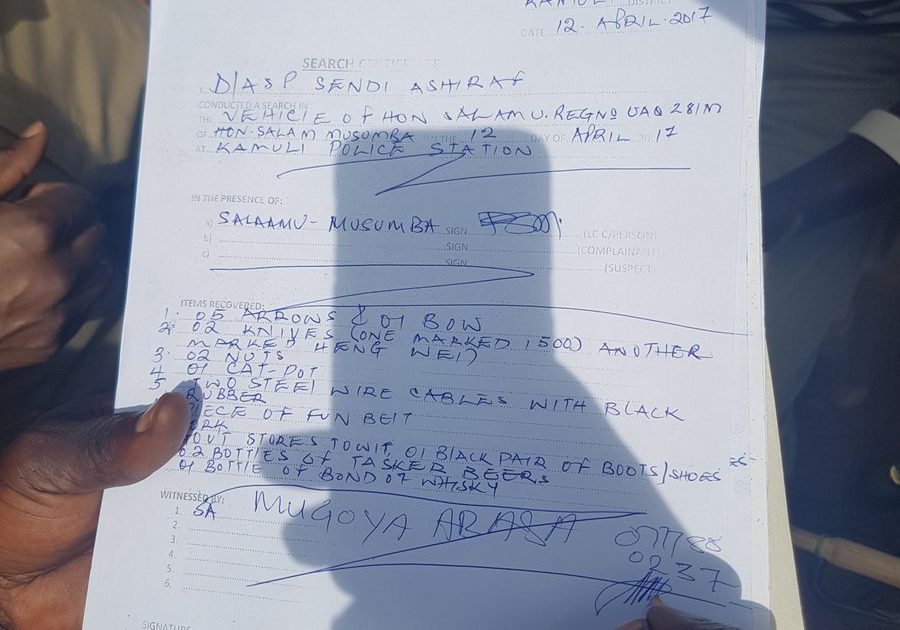 KAMULI DISTRICT
DATE: 12. APRIL. 2017
SEARCH CERTIFICATE
1. D/ASP SENDI ASHIRAF
CONDUCTED A SEARCH IN
THE VEHICLE OF HON SALAMU. REG NO UAQ 281M
OF HON. SALAM MUSUMBA ON THE 12 DAY OF APRIL 2017
AT KAMULI POLICE STATION
IN THE PRESENCE OF:
a) SALAAMU - MUSUMBA SIGN (LC C/PERSON)
b) SIGN (COMPLAINANT)
c) SIGN (SUSPECT)
ITEMS RECOVERED:
1. 05 ARROWS & 01 BOW
2. 02 KNIVES (ONE MARKED 1500) ANOTHER
MARKED HENG WEI)
3. 02 NUTS
4 01 CAT-POT
5 TWO STEEL WIRE CABLES WITH BLACK
RUBBER
PIECE OF FUN BELT
RK
STORES TOWIT, 01 BLACK PAIR OF BOOTS/SHOES
02 BOTTLES OF TASKER BEERS
01 BOTTLE OF BOND 07 WHISKY
WITNESSED BY:
1. SA MUGOYA ARASA
2.
3.
4.
5.
6.
0237
SIGNATURE